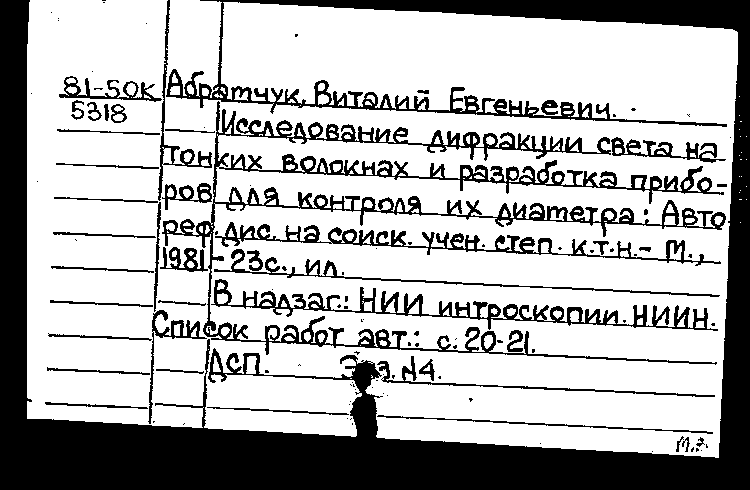 81-50К Абратчук, Виталий Евгеньевич.
5318
Исследование дифракции света на
тонких волокнах и разработка прибо-
ров для контроля их диаметра: Авто
реф. дис. на соиск. учен. степ. к.т.н.- М.,
1981.- 23с., ил.
В надзаг.: НИИ интроскопии. НИИН.
Список работ авт.: с. 20-21.
ДСП. Экз. №4.